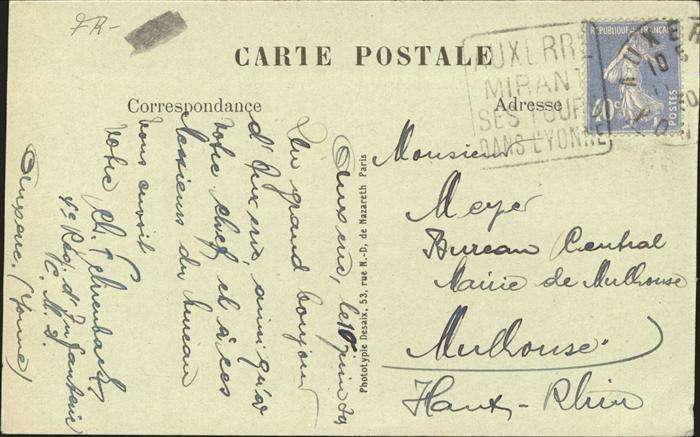 FR-
CARTE POSTALE
Correspondance
Adresse
AUXERRE
MIRANT
SES TOURS
DANS L'YONNE
REPUBLIQUE FRANCAISE
40c
POSTES
AUXERRE
Auxerre, le 10 juin
Un grand bonjour
d'Auxerre, ainsi qu'à
votre chef et à ces
Messieurs du bureau
vous envoit
votre Ch.
4e Rég. d'Infanterie
C. M. 2.
Auxerre. (Yonne)
Phototypie Desaix, 53, rue N.-D. de Nazareth Paris
Monsieur
Meyer
Bureau Central
Mairie de Mulhouse
Mulhouse
Haut-Rhin